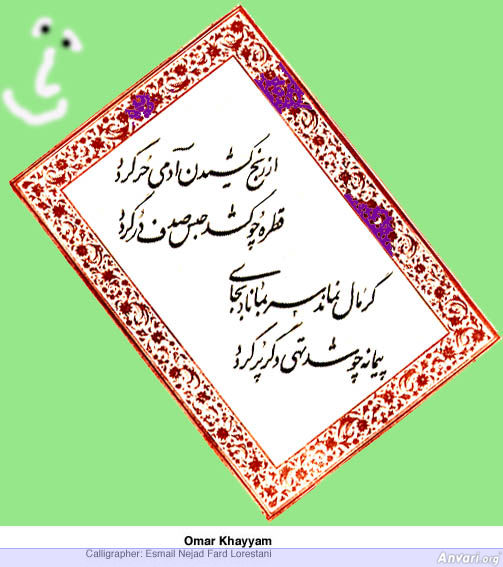 از رنج کشیدن آدمی حُر گردد
قطره چو کشد حبس صدف دُر گردد
گر مال نماند سر بماناد بجای
پیمانه چو شد تهی دگر پر گردد
Omar Khayyam
Calligrapher: Esmail Nejad Fard Lorestani
Anvari.org